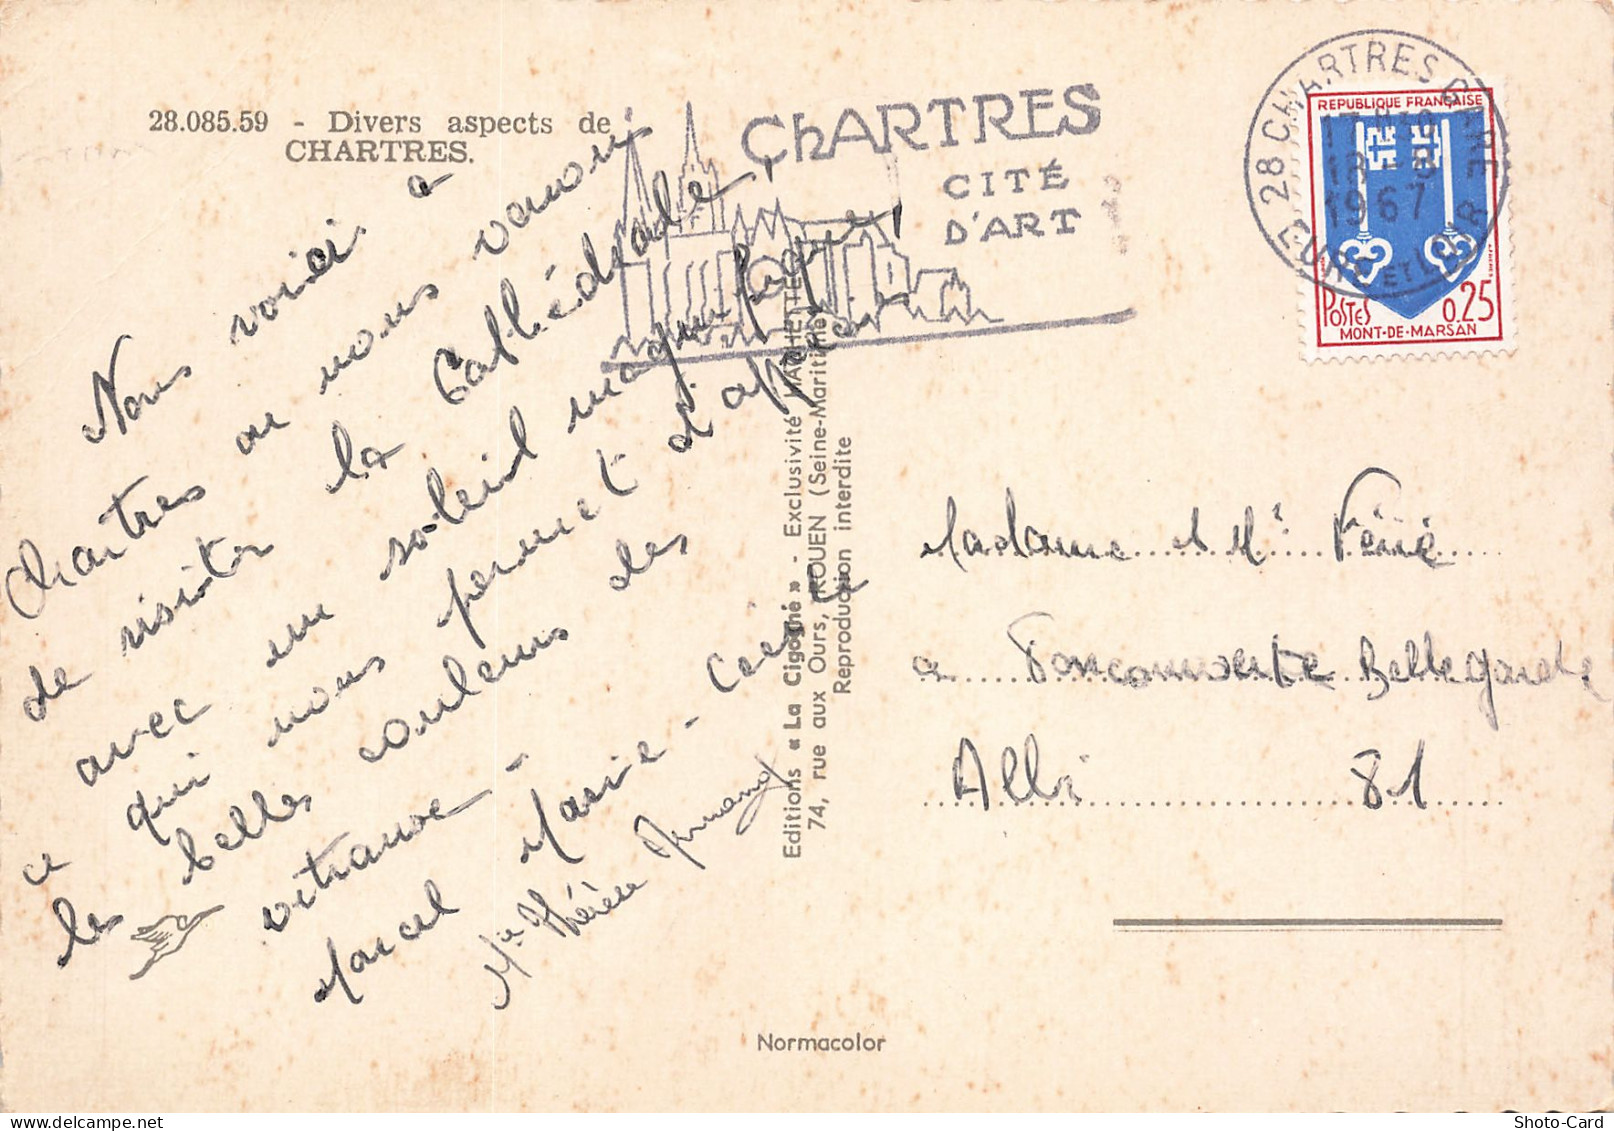 28.085.59 - Divers aspects de
CHARTRES.
Nous voici à
Chartres ou nous venons
de visiter la Cathédrade,
avec un soleil magnifique,
a qui nous permet d'apprécier
les belles couleurs des
vitraux -
Marcel Marie - Cécile
Mie Thérèse Armand
Editions « La Cigogne » - Exclusivité HACHETTE
74, rue aux Ours, ROUEN (Seine-Maritime)
Reproduction interdite
Normacolor
ChARTRES
CITÉ
D'ART
28 CHARTRES GARE
18 -8
1967
EURE ET LOIR
REPUBLIQUE FRANÇAISE
POSTES 0,25
MONT-DE-MARSAN
Madame et Mr
a Bellegarde
Albi 81
Shoto-Card